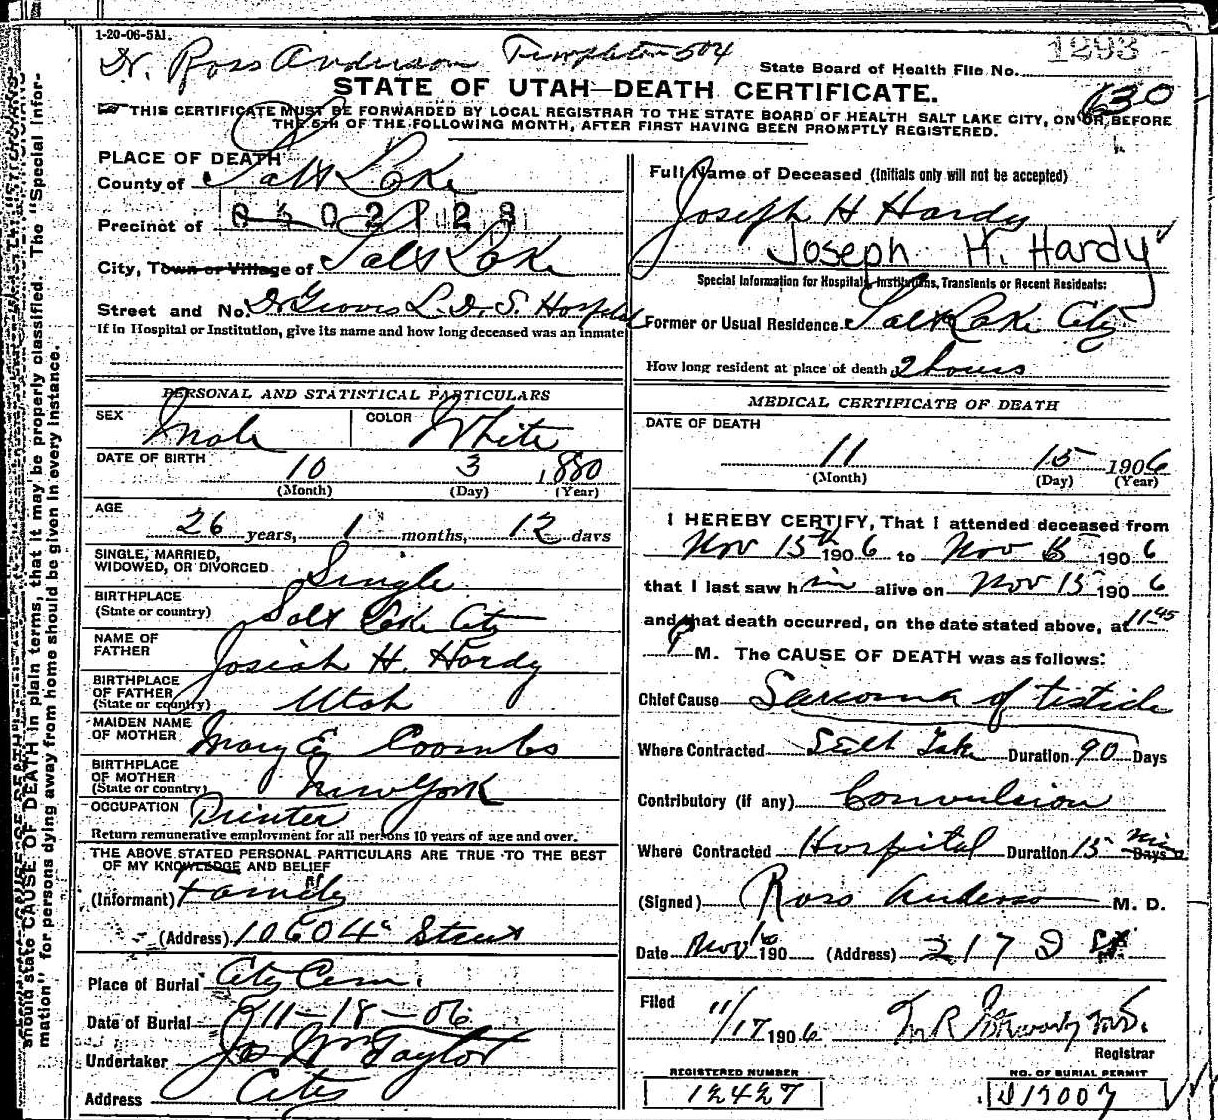 1-20-06-5M.
Dr. Ross Anderson Templeton 504
1293
State Board of Health File No.
STATE OF UTAH—DEATH CERTIFICATE.
630
THIS CERTIFICATE MUST BE FORWARDED BY LOCAL REGISTRAR TO THE STATE BOARD OF HEALTH SALT LAKE CITY, ON OR BEFORE
THE 5TH OF THE FOLLOWING MONTH, AFTER FIRST HAVING BEEN PROMPTLY REGISTERED.
PLACE OF DEATH
County of Salt Lake
Precinct of
City, Town or Village of Salt Lake
Street and No. Dr Groves L. D. S. Hospital
If in Hospital or Institution, give its name and how long deceased was an inmate
PERSONAL AND STATISTICAL PARTICULARS
SEX Male COLOR White
DATE OF BIRTH 10 3 1880
(Month) (Day) (Year)
AGE
26 years, 1 months, 12 days
SINGLE, MARRIED,
WIDOWED, OR DIVORCED Single
BIRTHPLACE
(State or country) Salt Lake City
NAME OF
FATHER Josiah H. Hardy
BIRTHPLACE
OF FATHER
(State or country) Utah
MAIDEN NAME
OF MOTHER Mary E Coombs
BIRTHPLACE
OF MOTHER
(State or country) New York
OCCUPATION Printer
Return remunerative employment for all persons 10 years of age and over.
THE ABOVE STATED PERSONAL PARTICULARS ARE TRUE TO THE BEST
OF MY KNOWLEDGE AND BELIEF
(Informant) Family
(Address) Street
Place of Burial City Cem.
Date of Burial 11-18-06
Undertaker Jos Wm Taylor
Address City
Full Name of Deceased (Initials only will not be accepted)
Joseph H Hardy
Joseph H. Hardy
Special Information for Hospitals, Institutions, Transients or Recent Residents:
Former or Usual Residence Salt Lake City
How long resident at place of death 2 hours
MEDICAL CERTIFICATE OF DEATH
DATE OF DEATH
11 15 1906
(Month) (Day) (Year)
I HEREBY CERTIFY, That I attended deceased from
Nov 15th 1906 to Nov 15 1906
that I last saw him alive on Nov 15 1906
and that death occurred, on the date stated above, at 11-45
P M. The CAUSE OF DEATH was as follows:
Chief Cause Sarcoma of testicle
Where Contracted Salt Lake Duration 90 Days
Contributory (if any) Convulsion
Where Contracted Hospital Duration 15 min Days
(Signed) Ross Anderson M. D.
Date Nov 16 190 (Address) 217 D St
Filed 11/17 1906
Registrar
REGISTERED NUMBER
12427
NO. OF BURIAL PERMIT
should state CAUSE OF DEATH in plain terms, that it may be properly classified. The "Special Infor-
mation" for persons dying away from home should be given in every instance.